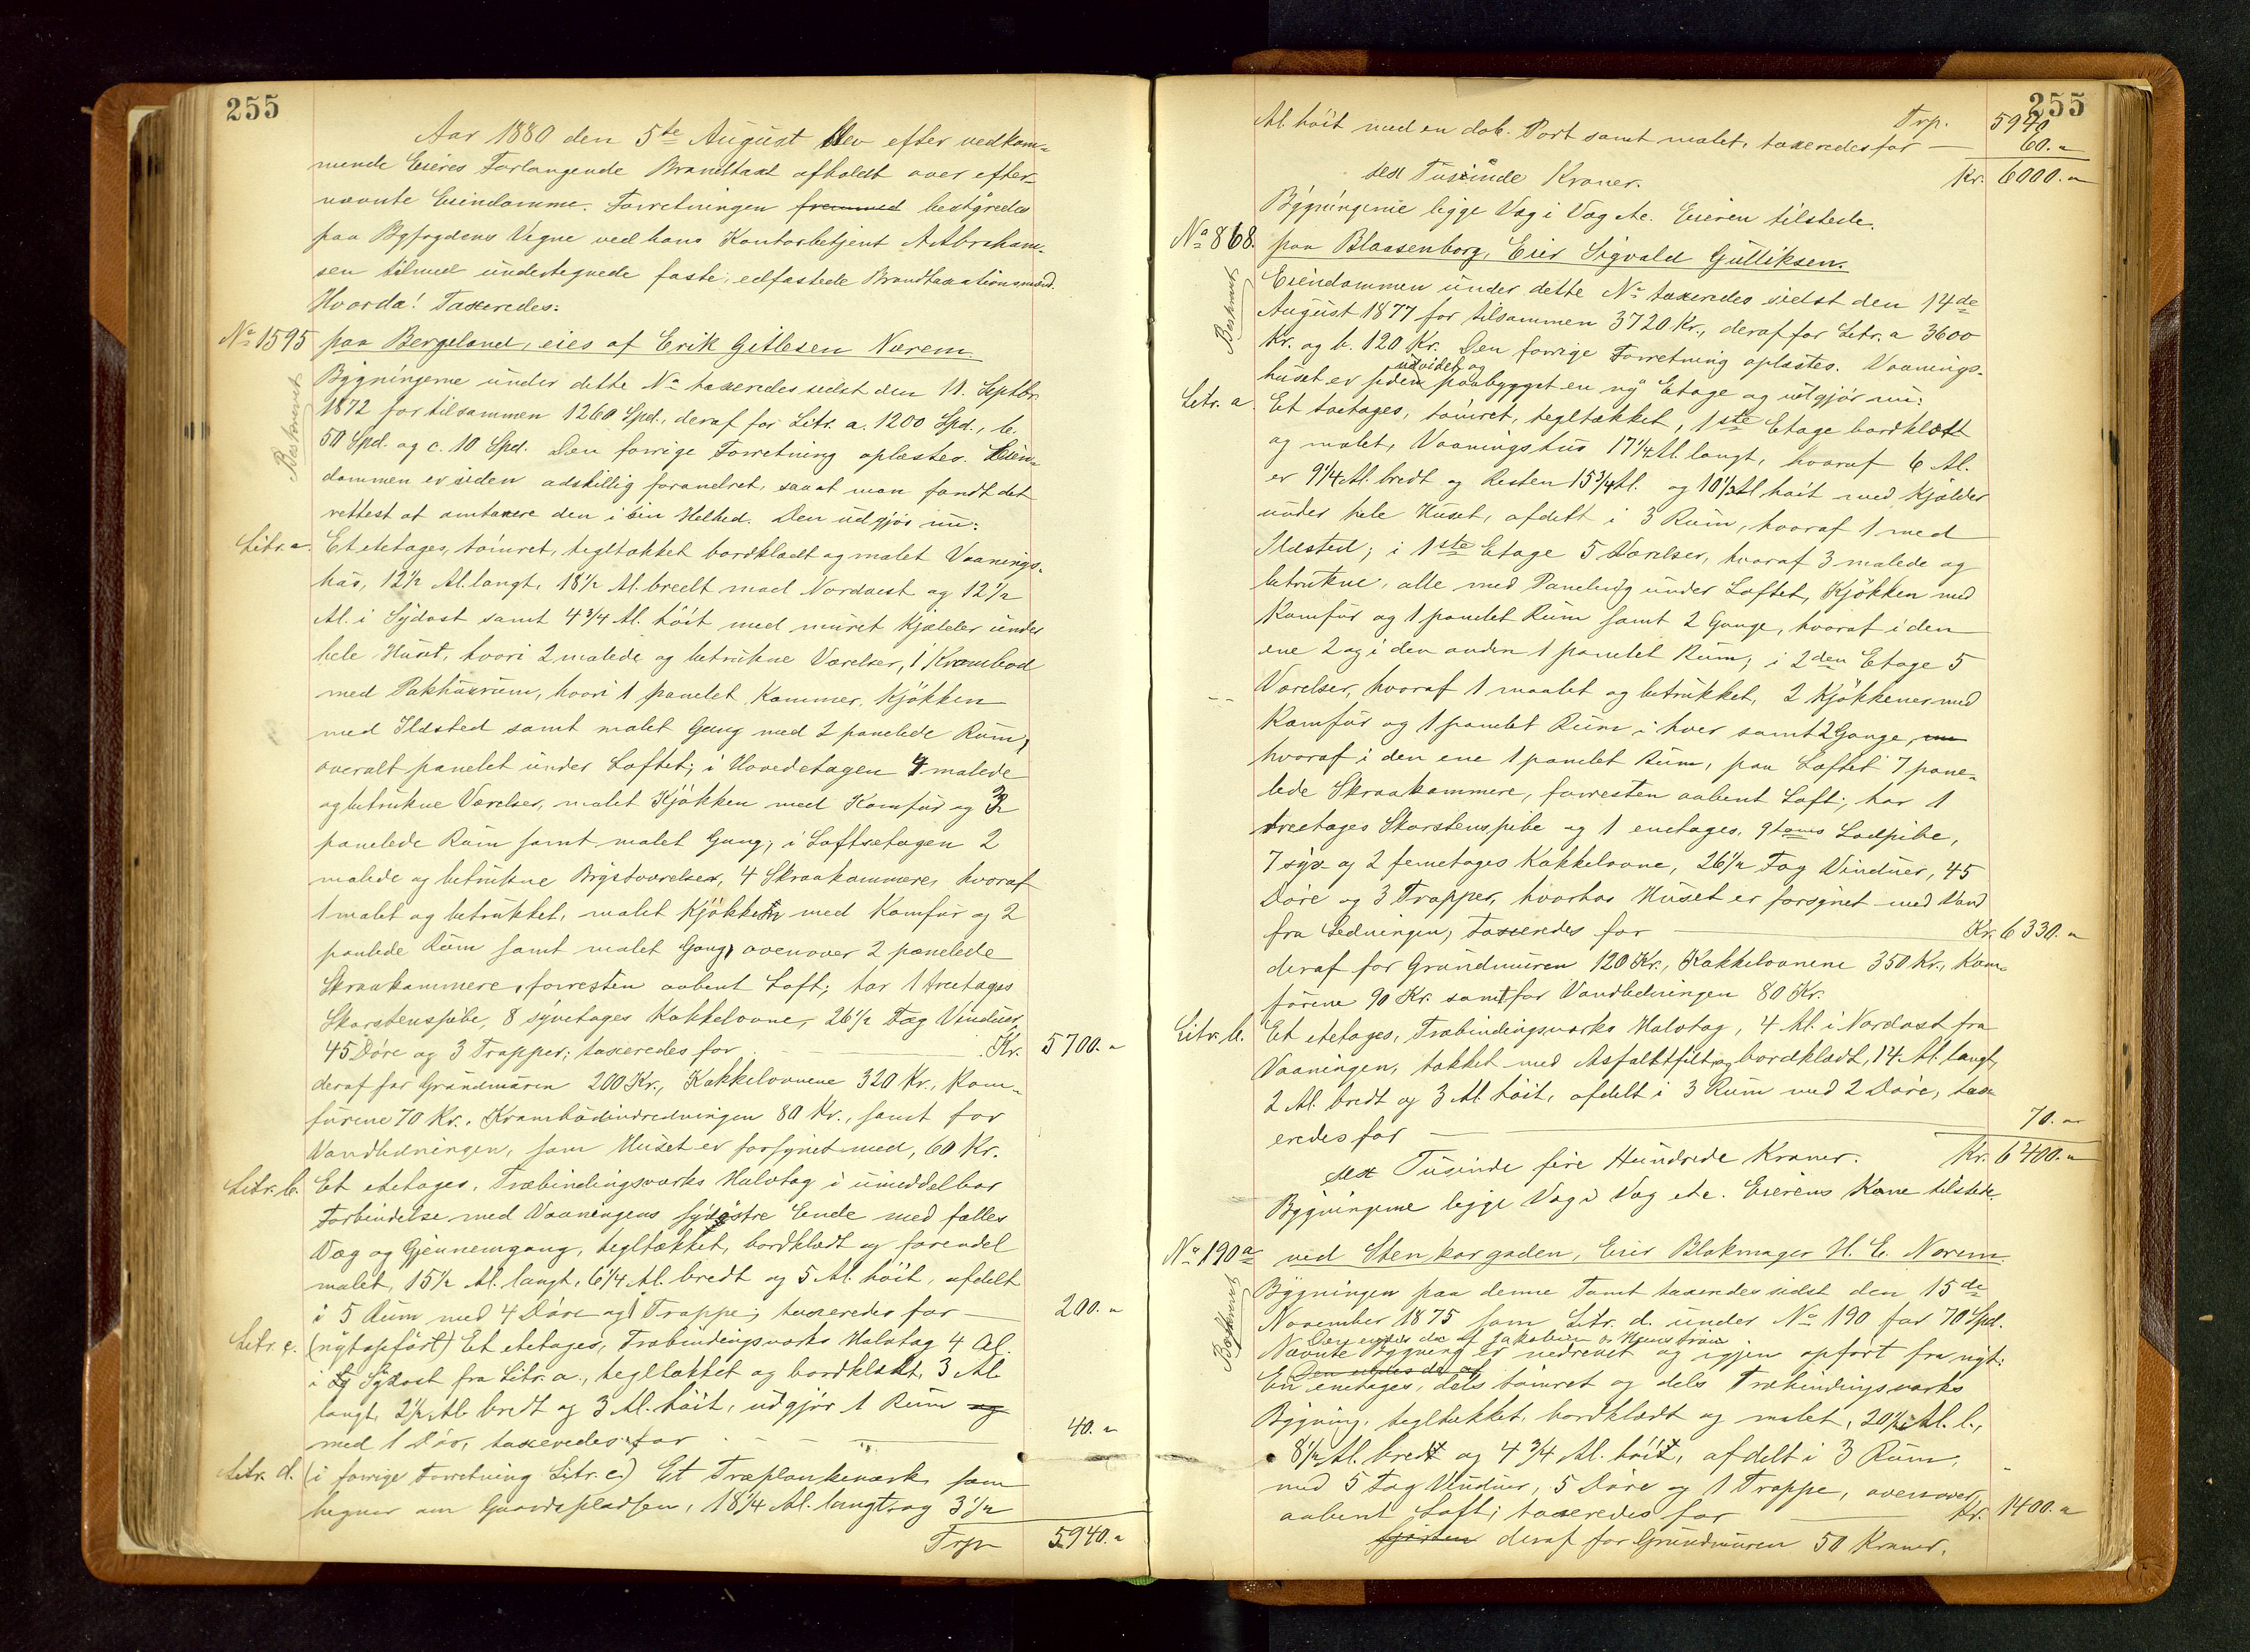 255
Aar 1880 den 5te August blev efter vedkom-
mende Eieres Forlangende Brandtaxt afholdt over efter-
nævnte Eiendomme. Forretningen fremmed bestyredes
paa Byfogdens Vegne ved hans Kontorbetjent A. Abraham-
sen tilmed undertegnede faste, edfæstede Brandtaxationsmænd.
Hvorda! Taxeredes:
No 1595 paa Bergeland, eies af Erik Gitlesen Nærem
Beskrevet
Bygningerne under dette No taxeredes sidst den 11. Septbr.
1872 for tilsammen 1260 Spd., deraf for Litr. a. 1200 Spd., b.
50 Spd. og c. 10 Spd. Den forrige Forretning oplæstes. Eien-
dommen er siden adskillig forandret, saa at man fandt det
rettest at omtaxere den i sin Helhed. Den udgjør nu:
Litr. a. Et etetages, tømret, tegltækket bordklædt og malet Vaanings-
hus, 12½ Al. langt, 18½ Al. bredt mod Nordvest og 12½
Al. i Sydost samt 4¾ Al. høit med muret Kjælder under
hele Huset, hvori 2 malede og betrukne Værelser, 1 Krambod
med Pakhusrum, hvori 1 panelet Kammer, Kjøkken
med Ildsted samt malet Gang med 2 panelede Rum,
overalt panelet under Loftet; i Hovedetagen 4 malede
og betrukne Værelser, malet Kjøkken med Komfur og 3
panelede Rum samt malet Gang; i Loftsetagen 2
malede og betrukne Brystværelser, 4 Skraakammere, hvoraf
1 malet og betrukket, malet Kjøkken med Komfur og 2
panlede Rum samt malet Gang, ovenover 2 panelede
Skraakammere, forresten aabent Loft; har 1 treetages
Skorstenspibe, 8 syvetages Kakkelovne, 26½ Fag Vinduer,
45 Døre og 3 Trapper; taxeredes for Kr. 5700.-
deraf for Grundmuren 200 Kr., Kakkelovnene 320 Kr., Kom-
furene 70 Kr., Krambodindredningen 80 Kr., samt for
Vandledningen, som Huset er forsynet med, 60 Kr.
Litr. b. Et etetages, Træbindingsværks Halvtag i umiddelbar
Forbindelse med Vaaningens sydøstre Ende med fælles
Væg og Gjennemgang, tegltækket, bordklædt og forendel
malet, 15½ Al. langt, 6¼ Al. bredt og 5 Al. høit, afdelt
i 5 Rum med 4 Døre og 1 Trappe; taxeredes for 200.-
Litr. c. (nytopført) Et etetages, Træbindingsværks Halvtag 4 Al.
i Sydost fra Litr. a., tegltækket og bordklædt, 3 Al.
langt, 2½ Al. bredt og 3 Al. høit, udgjør 1 Rum og
med 1 Dør, taxeredes for 40.-
Litr. d. (i forrige Forretning Litr. c.) Et Træplankeværk som
hegner om Gaardspladsen, 18¼ Al. langt og 3½
Trp 5940.-
255
Trp. 5940
Al. høit med en dob. Port samt malet, taxeredes for 60.-
sex Tusinde Kroner. Kr. 6000.-
Bygningerne ligge Væg i Væg etc. Eieren tilstede.
No 868. paa Blaasenborg, Eier Sigvald Gulliksen.
Beskrevet
Eiendommen under dette No taxeredes sidst den 14de
August 1877 for tilsammen 3720 Kr., deraf for Litr. a 3600
Kr. og b. 120 Kr. Den forrige Forretning oplæstes. Vaanings-
udvidet og
huset er siden paabygget en ny Etage og udgjør nu:
Litr. a. Et toetages, tømret, tegltækket, 1ste Etage bordklædt
og malet, Vaaningshus 17¼ Al. langt, hvoraf 6 Al.
er 9¼ Al. bredt og Resten 15¾ Al. og 10½ Al. høit med Kjælder
under hele Huset, afdelt i 3 Rum, hvoraf 1 med
Ildsted; i 1ste Etage 5 Værelser, hvoraf 3 malede og
betrukne, alle med Paneling under Loftet, Kjøkken med
Komfur og 1 panelet Rum samt 2 Gange, hvoraf i den
ene 2 og i den anden 1 panelet Rum; i 2den Etage 5
Værelser, hvoraf 1 maalet og betrukket, 2 Kjøkkener med
Komfur og 1 panelet Rum i hver samt 2 Gange,
hvoraf i den ene 1 panelet Rum, paa Loftet 7 pane-
lede Skraakammere, forresten aabent Loft; har 1
treetages Skorstenspibe og 1 enetages, 9toms Lodpibe,
7 syv- og 2 femetages Kakkelovne, 26½ Fag Vinduer, 45
Døre og 3 Trapper, hvorhos Huset er forsynet med Vand
fra Ledningen, taxeredes for Kr. 6330.-
deraf for Grundmuren 120 Kr., Kakkelovnene 350 Kr., Kom-
furene 90 Kr. samt for Vandledningen 80 Kr.
Litr. b. Et etetages, Træbindingsværks Halvtag, 4 Al. i Nordost fra
Vaaningen, tækket med Asfaltfilt og bordklædt, 14 Al. langt,
2 Al. bredt og 3 Al. høit, afdelt i 3 Rum med 2 Døre, tax-
eredes for 70.-
sex Tusinde fire Hundrede Kroner. Kr. 6400.-
Bygningerne ligge Væg i Væg etc. Eierens Kone tilstede
No 190a ved Stenkargaden, Eier Blokmager H. E. Norem.
Beskrevet
Bygningen paa denne Tomt taxeredes sidst den 15de
November 1875 som Litr. d. under No 190 for 70 Spd.
Den eiedes da af Jakobsen
Nævnte Bygning er nedrevet og igjen opført fra nyt:
Den eiedes da af
En enetages, dels tømret og dels Træbindingsværks
Bygning, tegltækket, bordklædt og malet, 20½ Al. l.,
8½ Al. bredt og 4¾ Al. høit, afdelt i 3 Rum,
med 5 Fag Vinduer, 5 Døre og 1 Trappe, ovenover
aabent Loft; taxeredes for Kr. 1400.-
fjorten deraf for Grundmuren 50 Kroner.